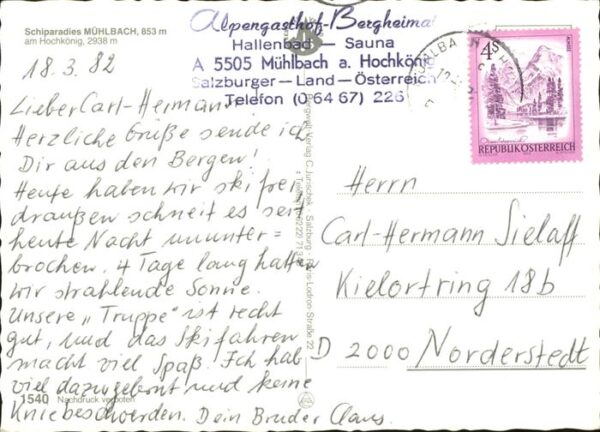 Schiparadies MÜHLBACH, 853 m
am Hochkönig, 2938 m
18.3.82
Alpengasthof-Bergheimat
Hallenbad — Sauna
A 5505 Mühlbach a. Hochkönig
Salzburger—Land—Österreich
Telefon (0 64 67) 226
4S
REPUBLIK ÖSTERREICH
Lieber Carl-Hermann!
Herzliche Grüße sende ich
Dir aus den Bergen!
Heute haben wir skifrei,
draußen schneit es seit
heute Nacht ununter=
brochen. 4 Tage lang hatten
wir strahlende Sonne.
Unsere „Truppe" ist recht
gut, und das Skifahren
macht viel Spaß. Ich hab
viel dazugelernt und keine
Kniebeschwerden. Dein Bruder Claus.
1540 Nachdruck verboten
Herrn
Carl-Hermann Sielaff
Kielortring 18b
D 2000 Norderstedt